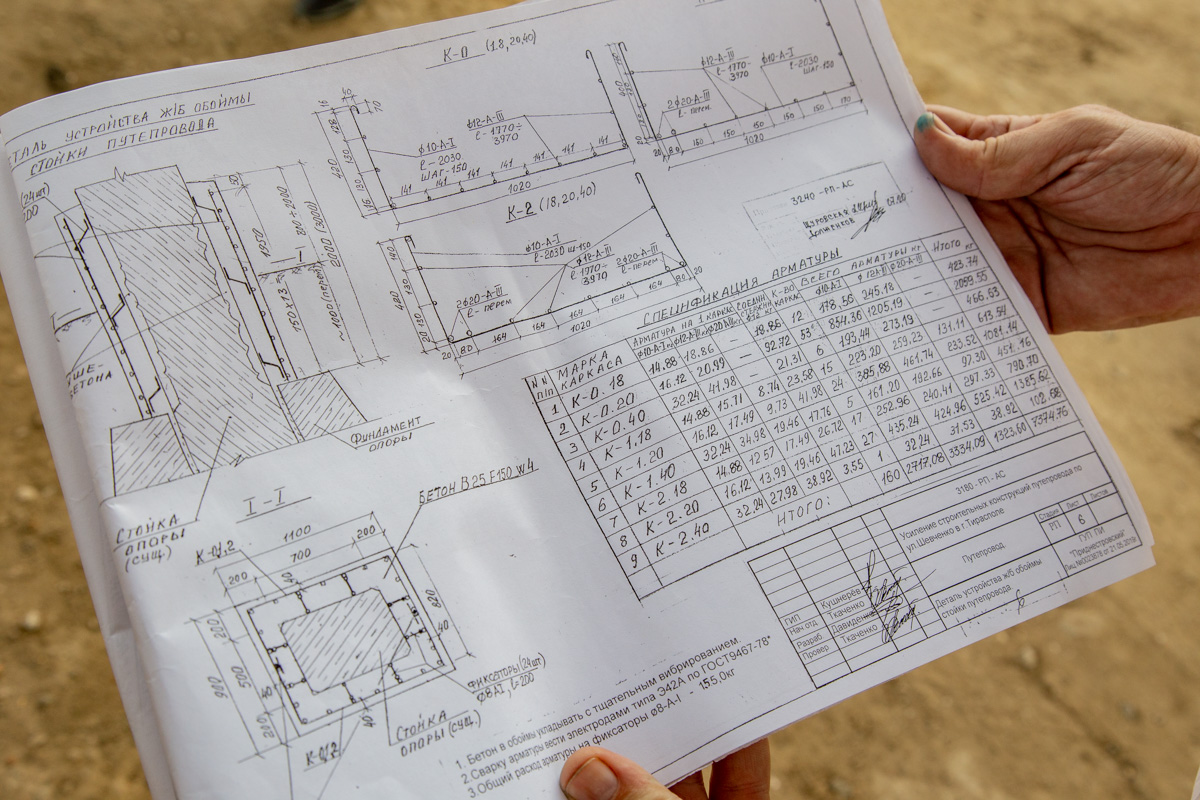 УСТРОЙСТВА Ж/Б ОБОЙМЫ
СТОЙКИ ПУТЕПРОВОДА
К-0 (18,20,40)
⌀10-А-I
ℓ-2030
ШАГ-150
⌀12-А-III
ℓ-1770÷
3970
141 141 141 141 141 141 141
1020
⌀12-А-III
ℓ-1770÷
3970
⌀10-А-I
ℓ-2030
ШАГ-150
2⌀20-А-III
ℓ-перем.
150 150 150 150 150
1020
К-2 (18,20,40)
⌀10-А-I
ℓ-2030 Ш-150
⌀12-А-III
ℓ-1770÷
3970
2⌀20-А-III
ℓ-перем.
2⌀20-А-III
ℓ-перем.
20 80 164 164 164 164 164 80 20
1020
3240 -РП-АС
ЩУРОВСКАЯ
ДОЛЖЕНКОВ
1950
200÷2000
2000 (3000)
150х13
ФУНДАМЕНТ
ОПОРЫ
СТОЙКА
ОПОРЫ
(СУЩ.)
I-I
БЕТОН В25 F150 W4
1100
200 700 200
К-0,1,2
820
40
200
500
900
200
ФИКСАТОРЫ (24шт)
⌀8АI, ℓ=200
СТОЙКА
ОПОРЫ (СУЩ.)
К-0,1,2
СПЕЦИФИКАЦИЯ АРМАТУРЫ
N N п/п МАРКА КАРКАСА АРМАТУРА НА 1 КАРКАС К-ВО КАРКАС ВСЕГО АРМАТУРЫ КГ ИТОГО кг
1 К-0.18 14.88 18.86 — 18.86 12 178.56 245.18 — 423.74
2 К-0.20 16.12 20.99 — 92.72 53 854.36 1205.19 — 2059.55
3 К-0.40 32.24 41.98 — 21.31 6 193,44 273.19 — 466.63
4 К-1.18 14.88 15.71 8.74 23.58 15 223.20 259.23 131.11 613.54
5 К-1.20 16.12 17.49 9.73 41.98 24 385,88 461.74 233.52 1081.14
6 К-1.40 32.24 34.98 19.46 17.76 5 161.20 192.66 97.30 451.16
7 К-2.18 14.88 12.57 17.49 26.72 17 252.96 240.41 297.33 790.70
8 К-2.20 16.12 13.99 19.46 47.23 27 435.24 424.96 525.42 1385.62
9 К-2.40 32.24 27.98 38.92 3.55 1 32.24 31.53 38.92 102.68
ИТОГО: 160 2717.08 3334.09 1323.60 7374.76
3180 -РП- АС
Усиление строительных конструкций путепровода по
ул.Шевченко в г.Тирасполе
Путепровод
Стадия Лист Листов
РП 6
ГИП Кушнерёв
Нач.отд Ткаченко
Разраб Давиденко
Провер Ткаченко
Деталь устройства ж/б обоймы
стойки путепровода
ГУП ПИ
"Приднестровский"
1. Бетон в обоймы укладывать с тщательным вибрированием.
2.Сварку арматуры вести электродами типа Э42А по ГОСТ9467-78*
3.Общий расход арматуры на фиксаторы ⌀8-А-I - 155,0кг